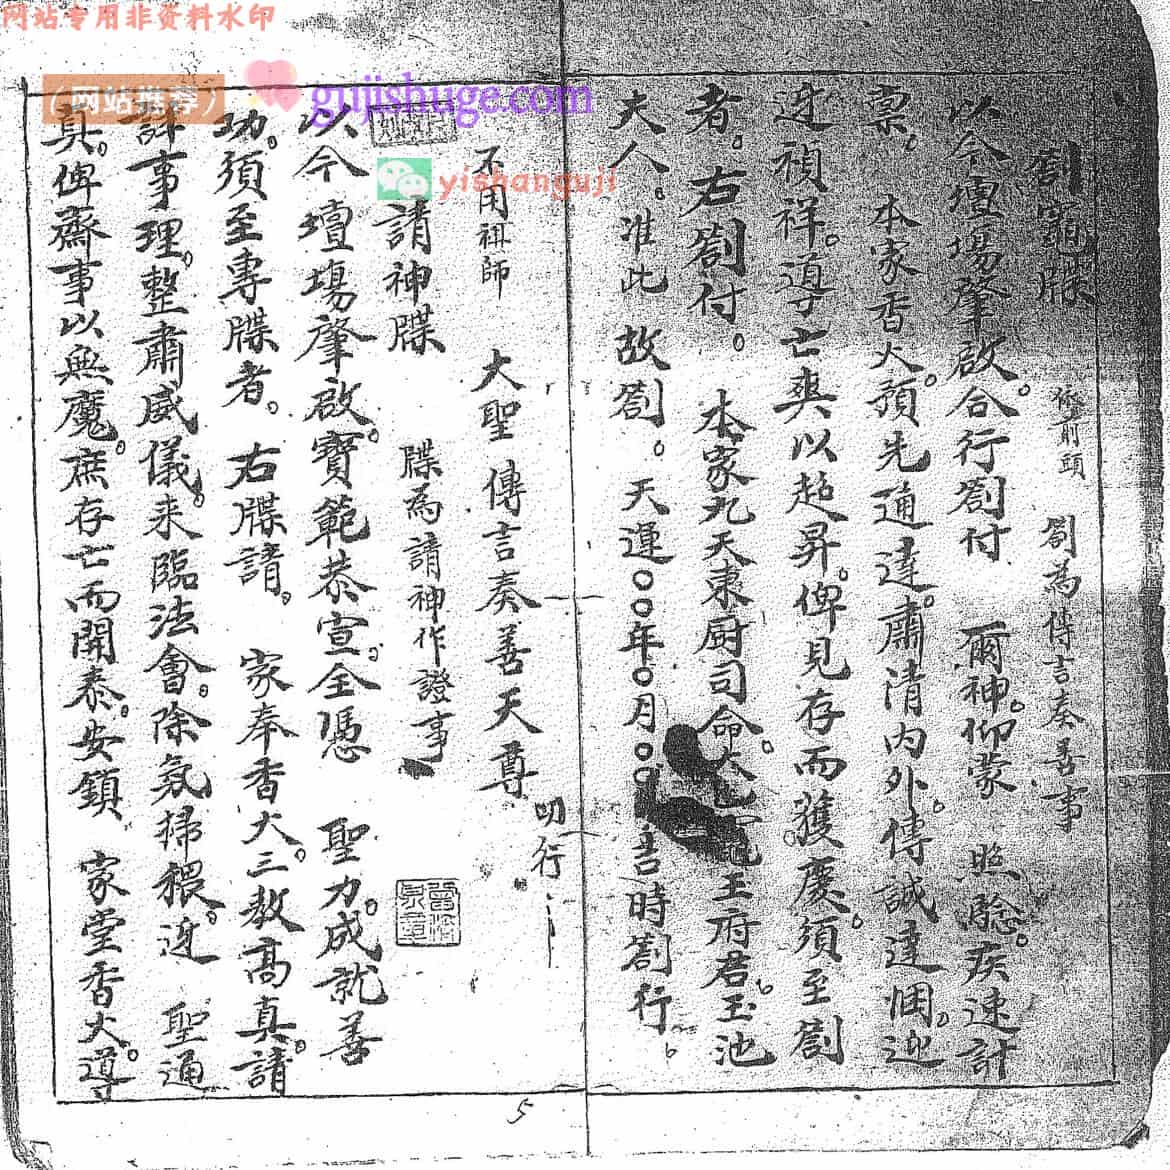 网站专用非资料水印
（网站推荐）
gujishuge.com
yishanguji
劄竈牒 依前頭 劄為傳言奏善事
以今壇塲肇啟。合行劄付 爾神。仰蒙 照驗。疾速計
禀。 本家香火。預先通達。肅清内外。傳誠達悃。迎
迓禎祥。導亡爽以超昇。俾見存而獲慶。須至劄
者。右劄付。 本家九天東厨司命。太乙竈王府君。玉池
夫人。准此故劄。天運〇〇年〇月〇〇吉時劄行。
叩行
不用祖師 大聖傳言奏善天尊
請神牒 牒為請神作證事
以今壇塲肇啟。寶範恭宣。全憑 聖力。成就善
功。須至專牒者。右牒請。 家奉香火。三教高真。請
詳事理。整肅威儀。来臨法會。除氛掃穢。迎 聖通
真。俾齋事以無魔。庶存亡而開泰。安鎮 家堂香火。導
5